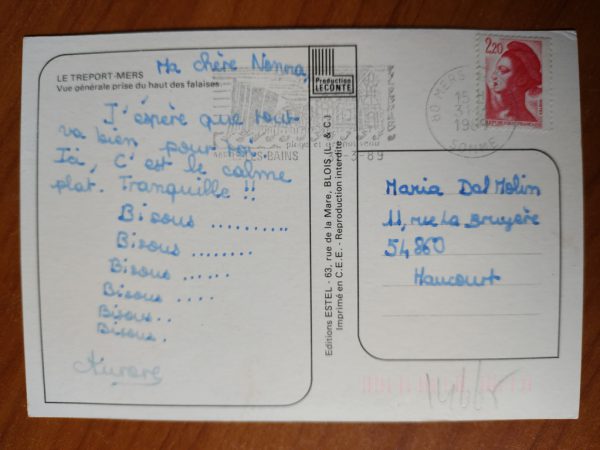 LE TREPORT-MERS
Vue générale prise du haut des falaises.
Ma chère Nonna,
J'espère que tout
va bien pour toi.
Ici, C'est le calme
plat. Tranquille !!
Bisous ..........
Bisous ........
Bisous .....
Bisous ....
Bisous..
Bisous.
Production
LECONTE
Editions ESTEL - 63, rue de la Mare, BLOIS (L. & C.)
Imprimé en C.E.E. - Reproduction interdite
BAINS
-3-89
80 MERS
15
1989
SOMME
2,20
Maria Dal Molin
11, rue La Bruyère
54860
Haucourt